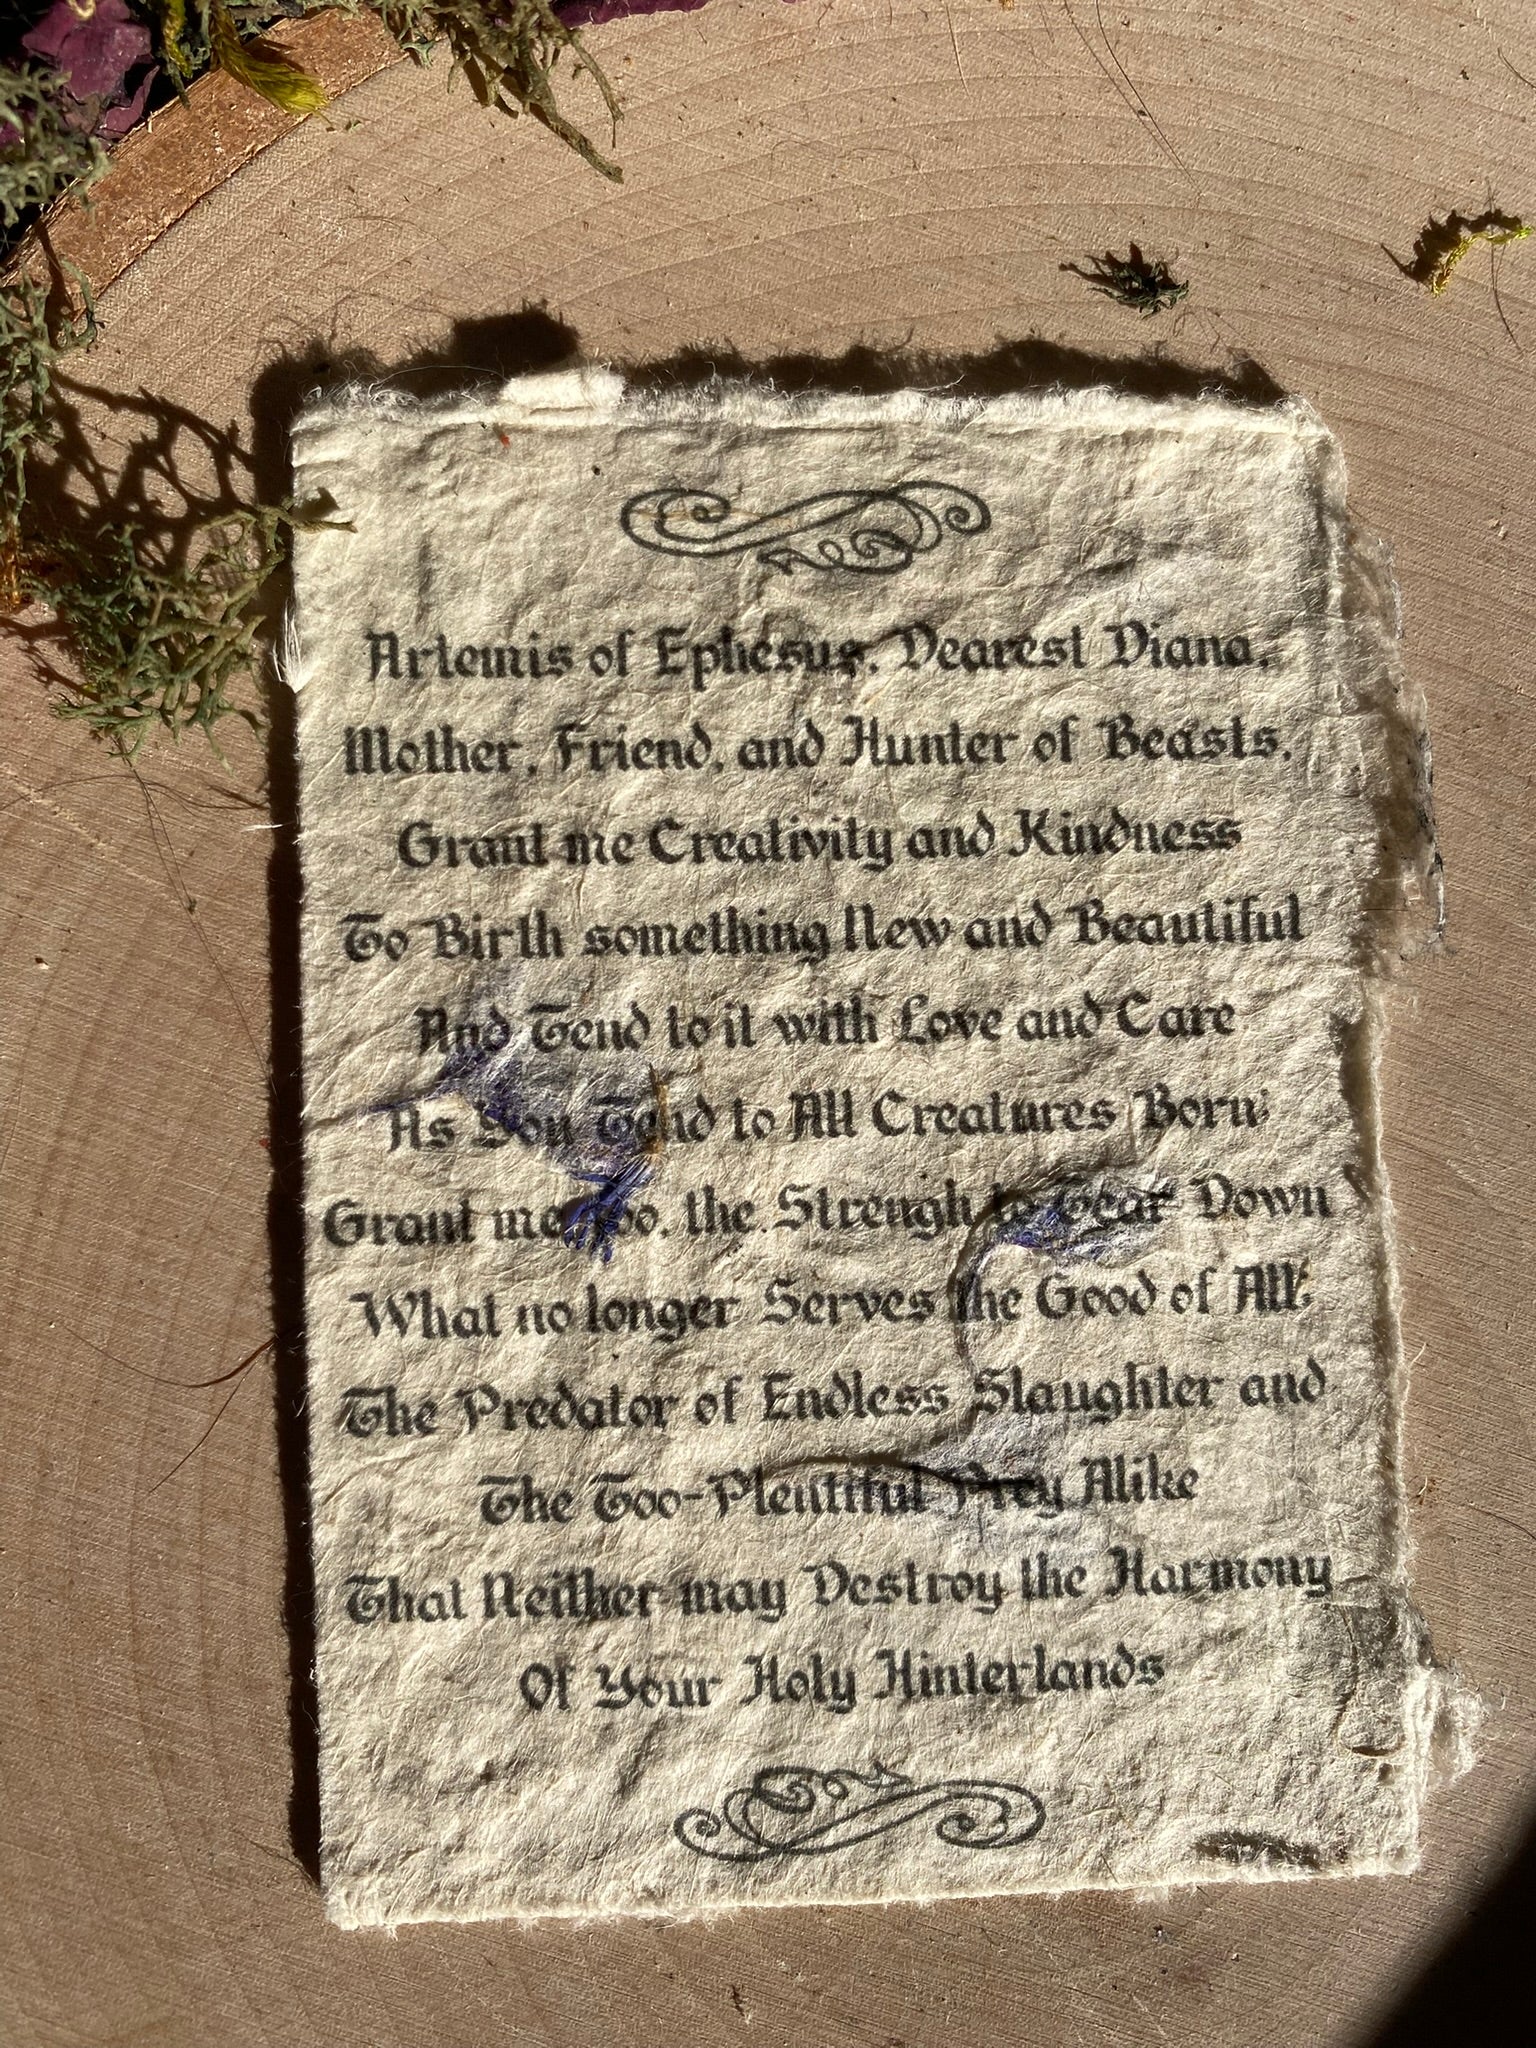 Artemis of Ephesus, Dearest Diana,
Mother, Friend, and Hunter of Beasts,
Grant me Creativity and Kindness
To Birth something New and Beautiful
And Tend to it with Love and Care
As You Tend to All Creatures Born;
Grant me, too, the Strengh to Tear Down
What no longer Serves the Good of All;
The Predator of Endless Slaughter and
The Too-Plentiful Prey Alike
That Neither may Destroy the Harmony
Of Your Holy Hinterlands